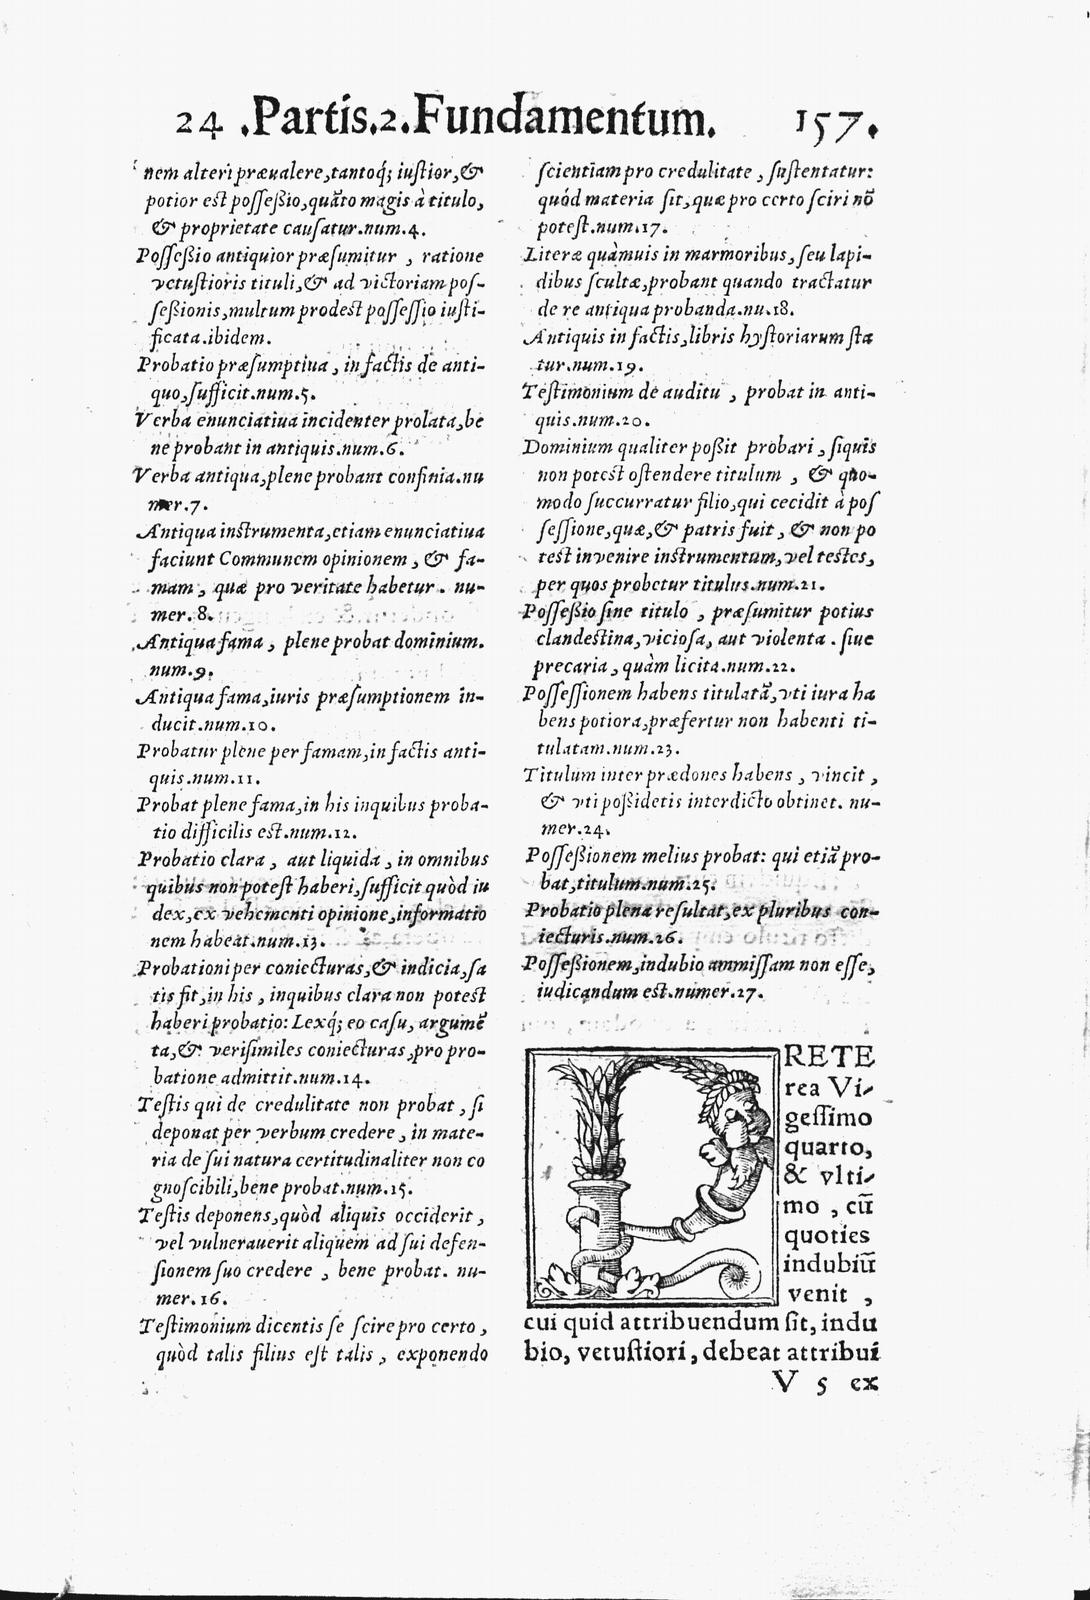 24 .Partis.2.Fundamentum. 157.
nem alteri præualere,tantoq́; iustior,&
potior est possessio,quãto magis à titulo,
& proprietate causatur.num.4.
Possessio antiquior præsumitur , ratione
vetustioris tituli,& ad victoriam pos-
sessionis,multum prodest possessio iusti-
ficata.ibidem.
Probatio præsumptiua , in factis de anti-
quo,sufficit.num.5.
Verba enunciatiua incidenter prolata,be
ne probant in antiquis.num.6.
Verba antiqua,plene probant confinia.nu
mer.7.
Antiqua instrumenta,etiam enunciatiua
faciunt Communem opinionem , & fa-
mam , quæ pro veritate habetur . nu-
mer.8.
Antiqua fama , plene probat dominium.
num.9.
Antiqua fama,iuris præsumptionem in-
ducit.num.10.
Probatur plene per famam,in factis anti-
quis.num.11.
Probat plene fama,in his inquibus proba-
tio difficilis est.num.12.
Probatio clara , aut liquida , in omnibus
quibus non potest haberi,sufficit quòd iu
dex,ex vehementi opinione,informatio
nem habeat.num.13.
Probationi per coniecturas,& indicia,sa
tis fit,in his , inquibus clara non potest
haberi probatio: Lexq́; eo casu, argumẽ
ta,& verisimiles coniecturas,pro pro-
batione admittit.num.14.
Testis qui de credulitate non probat , si
deponat per verbum credere , in mate-
ria de sui natura certitudinaliter non co
gnoscibili,bene probat.num.15.
Testis deponens,quòd aliquis occiderit ,
vel vulnerauerit aliquem ad sui defen-
sionem suo credere , bene probat. nu-
mer.16.
Testimonium dicentis se scire pro certo ,
quòd talis filius est talis , exponendo
scientiam pro credulitate , sustentatur:
quód materia sit,quæ pro certo sciri nõ
potest.num.17.
Literæ quàmuis in marmoribus,seu lapi-
dibus scultæ,probant quando tractatur
de re antiqua probanda.nu.18.
Antiquis in factis,libris hystoriarum sta
tur.num.19.
Testimonium de auditu , probat in anti-
quis.num.20.
Dominium qualiter possit probari , siquis
non potest ostendere titulum , & quo-
modo succurratur filio,qui cecidit à pos
sessione,quæ,& patris fuit , & non po
test invenire instrumentum,vel testes,
per quos probetur titulus.num.21.
Possessio sine titulo , præsumitur potius
clandestina,viciosa, aut violenta . siue
precaria , quàm licita.num.22.
Possessionem habens titulatã,vti iura ha
bens potiora,præfertur non habenti ti-
tulatam.num.23.
Titulum inter prædones habens , vincit ,
& vti possidetis interdicto obtinet. nu-
mer.24.
Possessionem melius probat: qui etiã pro-
bat,titulum.num.25.
Probatio plena resultat,ex pluribus con-
iecturis.num.26.
Possessionem,indubio ammissam non esse,
iudicandum est.numer.27.
PRETE
rea Vi-
gessimo
quarto,
& vlti-
mo , cũ
quoties
indubiũ
venit ,
cui quid attribuendum sit, indu
bio, vetustiori, debeat attribui
V 5 ex